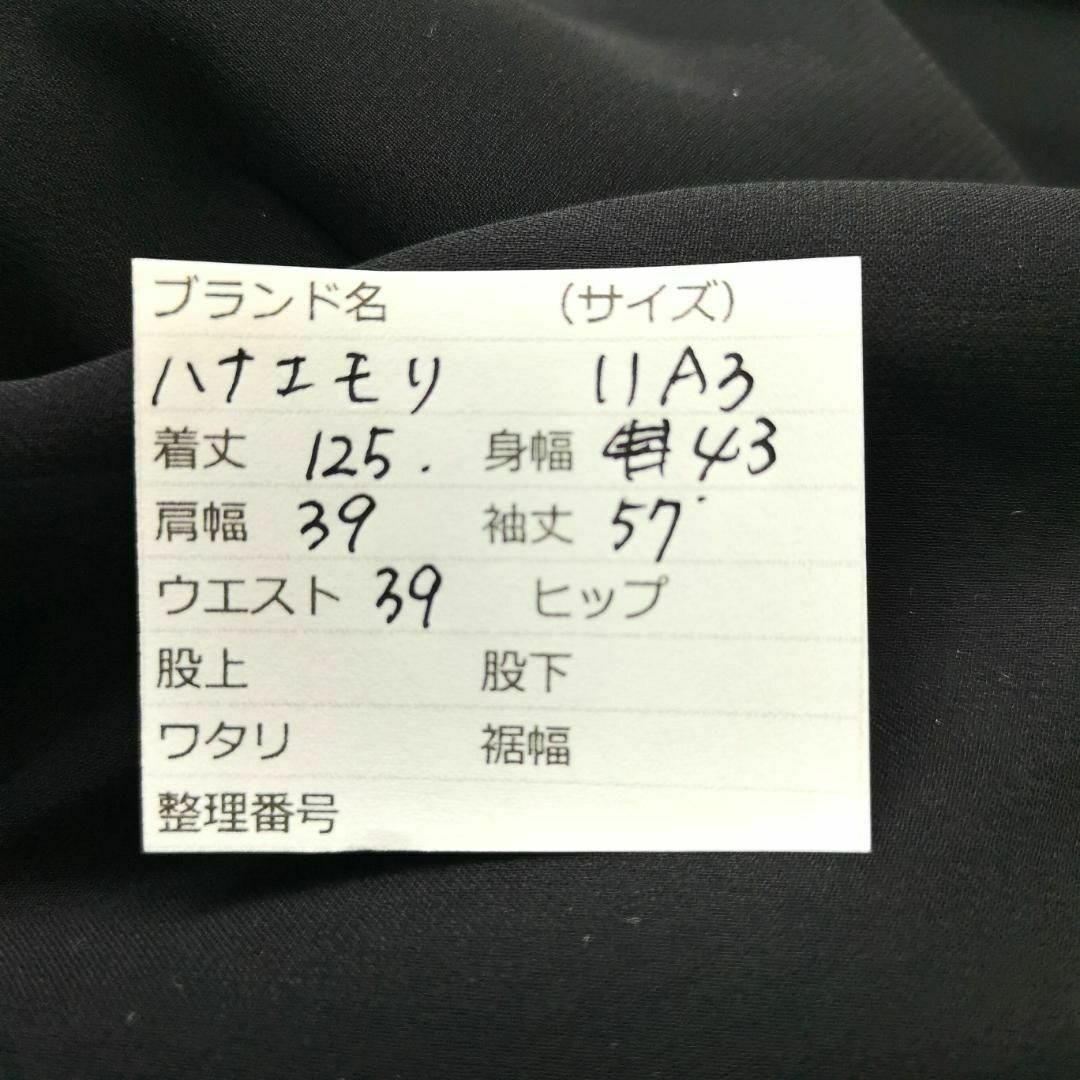 ブランド名 （サイズ）
ハナエモリ 11A3
着丈 125. 身幅 43
肩幅 39 袖丈 57
ウエスト 39 ヒップ
股上 股下
ワタリ 裾幅
整理番号